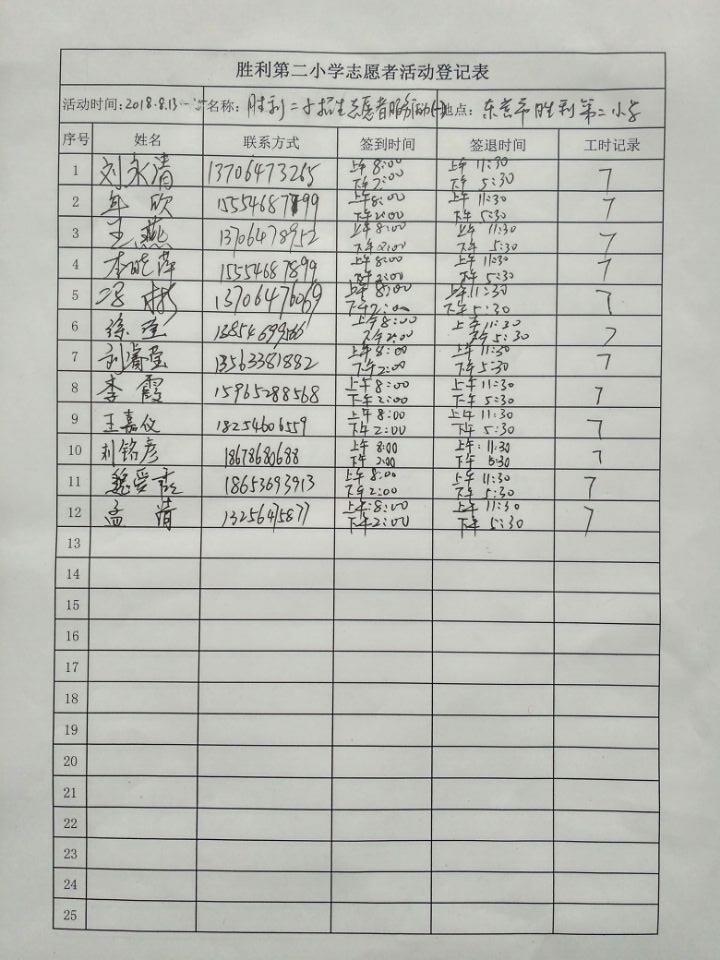 胜利第二小学志愿者活动登记表
活动时间:2018.8.13 名称: 胜利二小招生志愿者服务活动(一) 地点: 东营市胜利第二小学
序号 姓名 联系方式 签到时间 签退时间 工时记录
1 刘永清 13706473265 上午8:00 下午2:00 上午11:30 下午5:30 7
2 欣 上午8:00 下午2:00 上午11:30 下午5:30 7
3 王燕 13706478952 上午8:00 下午2:00 上午11:30 下午5:30 7
4 李晓萍 15554687899 上午8:00 下午2:00 上午11:30 下午5:30 7
5 13706476069 上午8:00 下午2:00 上午11:30 下午5:30 7
6 徐莹 上午8:00 下午2:00 上午11:30 下午5:30 7
7 刘睿莹 13563381882 上午8:00 下午2:00 上午11:30 下午5:30 7
8 李霞 15965288568 上午8:00 下午2:00 上午11:30 下午5:30 7
9 王嘉仪 18254606559 上午8:00 下午2:00 上午11:30 下午5:30 7
10 刘铭彦 18678680688 上午8:00 下午2:00 上午:11:30 下午5:30 7
11 魏 18653693913 上午8:00 下午2:00 上午11:30 下午5:30 7
12 孟清 13256475877 上午:8:00 下午2:00 上午11:30 下午5:30 7
13
14
15
16
17
18
19
20
21
22
23
24
25